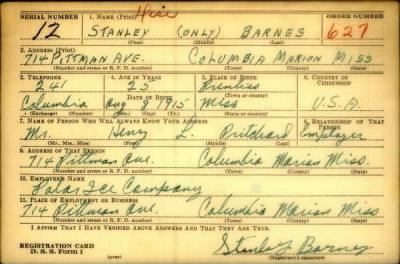 SERIAL NUMBER 1. NAME (Print) ORDER NUMBER
12 STANLEY (ONLY) BARNES 627
(First) (Middle) (Last)
2. ADDRESS (Print)
714 PITTMAN AVE. COLUMBIA MARION MISS
(Number and street or R. F. D. number) (Town) (County) (State)
3. TELEPHONE 4. AGE IN YEARS 5. PLACE OF BIRTH 6. COUNTRY OF CITIZENSHIP
241 25 Prentiss
DATE OF BIRTH (Town or county)
Columbia Aug 8 1915 Miss U.S.A.
(Exchange) (Number) (Mo.) (Day) (Yr.) (State or country)
7. NAME OF PERSON WHO WILL ALWAYS KNOW YOUR ADDRESS 8. RELATIONSHIP OF THAT PERSON
Mr. Henry L. Pritchard Employer
(Mr., Mrs., Miss) (First) (Middle) (Last)
9. ADDRESS OF THAT PERSON
714 Pittman Ave. Columbia Marion Miss.
(Number and street or R. F. D. number) (Town) (County) (State)
10. EMPLOYER'S NAME
Polar Ice Company
11. PLACE OF EMPLOYMENT OR BUSINESS
714 Pittman Ave. Columbia Marion Miss.
(Number and street or R. F. D. number) (Town) (County) (State)
I AFFIRM THAT I HAVE VERIFIED ABOVE ANSWERS AND THAT THEY ARE TRUE.
REGISTRATION CARD
D. S. S. Form 1 Stanley Barnes
(over) (Registrant's signature)